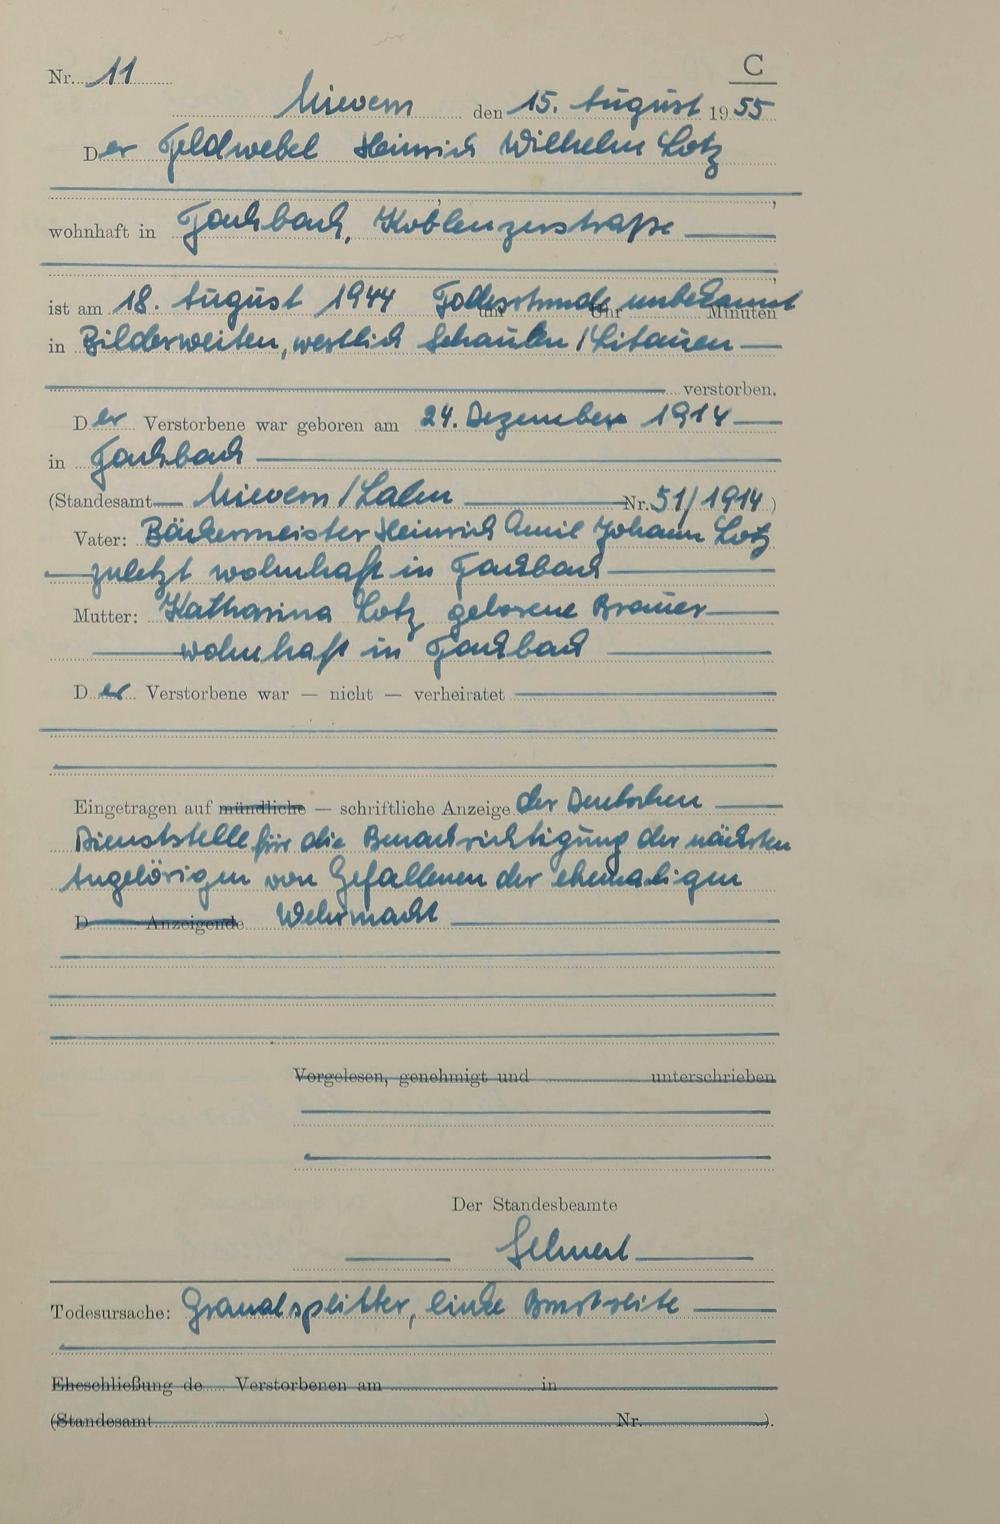 C
Nr. 11
Miesem den 15. August 1955
Der Feldwebel Heinrich Wilhelm Lotz
wohnhaft in Fachbach, Koblenzerstraße
ist am 18. August 1944 Todesstunde unbekannt um Uhr Minuten
in Bilderweiten, westlich Schaulen / Litauen
verstorben.
Der Verstorbene war geboren am 24. Dezember 1914
in Fachbach
(Standesamt Nievern / Lahn Nr. 51/1914)
Vater: Bäckermeister Heinrich Emil Johann Lotz
zuletzt wohnhaft in Fachbach
Mutter: Katharina Lotz geborene Brauer
wohnhaft in Fachbach
Der Verstorbene war — nicht — verheiratet
Eingetragen auf mündliche — schriftliche Anzeige der Deutschen
Dienststelle für die Benachrichtigung der nächsten
Angehörigen von Gefallenen der ehemaligen
D Anzeigende Wehrmacht
Vorgelesen, genehmigt und unterschrieben
Der Standesbeamte
Todesursache: Granatsplitter, linke Brustseite
Eheschließung de Verstorbenen am in
(Standesamt Nr. ).